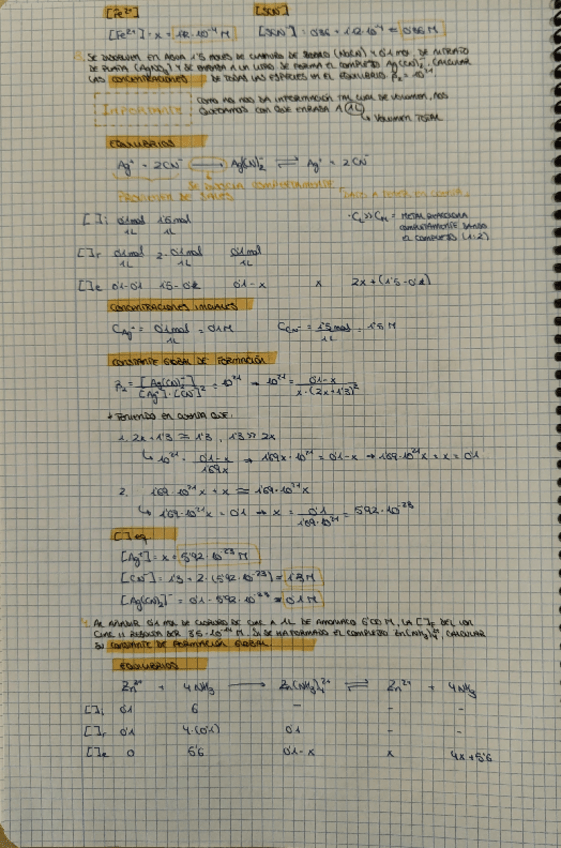 [Fe²⁺] [SCN⁻]
[Fe²⁺] = x = 1'2·10⁻⁴ M [SCN⁻] = 0'86 + 1'2·10⁻⁴ = 0'86 M
3. SE DISUELVEN EN AGUA 1'5 MOLES DE CIANURO DE SODIO (NaCN) Y 0'1 mol DE NITRATO
DE PLATA (AgNO₃) Y SE ENRASA A UN LITRO. SE FORMA EL COMPLEJO Ag(CN)₂⁻. CALCULAR
LAS CONCENTRACIONES DE TODAS LAS ESPECIES EN EL EQUILIBRIO. β₂ = 10²¹
Importante
COMO NO NOS DA INFORMACIÓN TAL CUAL DE VOLUMEN, NOS
QUEDAMOS CON QUE ENRASA A (1L)
↳ VOLUMEN TOTAL
EQUILIBRIOS
Ag⁺ + 2CN⁻ ⟶ Ag(CN)₂⁻ ⇌ Ag⁺ + 2CN⁻
SALES
[ ]i 0'1mol/1L 1'5mol/1L
· C_L >> C_M = METAL REACCIONA
COMPLETAMENTE DANDO
EL COMPLEJO (1:2)
[ ]r 0'1mol/1L 2·0'1mol/1L 0'1mol/1L
[ ]e 0'1-0'1 1'5-0'2 0'1-x x 2x+(1'5-0'2)
CONCENTRACIONES INICIALES
C_Ag⁺ = 0'1mol/1L = 0'1M C_CN⁻ = 1'5mol/1L = 1'5 M
CONSTANTE GLOBAL DE FORMACIÓN
β₂ = [Ag(CN)₂⁻]/[Ag⁺]·[CN⁻]² = 10²¹ → 10²¹ = 0'1-x / x·(2x+1'3)²
* TENIENDO EN CUENTA QUE:
1. 2x + 1'3 ≅ 1'3 , 1'3 >> 2x
↳ 10²¹ = 0'1-x / 1'69x → 1'69x·10²¹ = 0'1-x → 1'69·10²¹x + x = 0'1
2. 1'69·10²¹x + x ≅ 1'69·10²¹x
↳ 1'69·10²¹x = 0'1 → x = 0'1 / 1'69·10²¹ = 5'92·10⁻²³
[ ] eq
[Ag⁺] = x = 5'92·10⁻²³ M
[CN⁻] = 1'3 + 2·(5'92·10⁻²³) = 1'3 M
[Ag(CN)₂⁻] = 0'1 - 5'92·10⁻²³ = 0'1 M
4. AL AÑADIR 0'1 MOL DE CLORURO DE CINC A 1L DE AMONIACO 6'00 M, LA [ ]F DEL ION
CINC II RESULTA SER 3'5·10⁻¹⁴ M. SI SE HA FORMADO EL COMPLEJO Zn(NH₃)₄²⁺, CALCULAR
SU CONSTANTE DE FORMACIÓN GLOBAL.
EQUILIBRIOS
Zn²⁺ + 4NH₃ ⟶ Zn(NH₃)₄²⁺ ⇌ Zn²⁺ + 4NH₃
[ ]i 0'1 6 - - -
[ ]r 0'1 4·(0'1) 0'1 - -
[ ]e 0 5'6 0'1-x x 4x+5'6